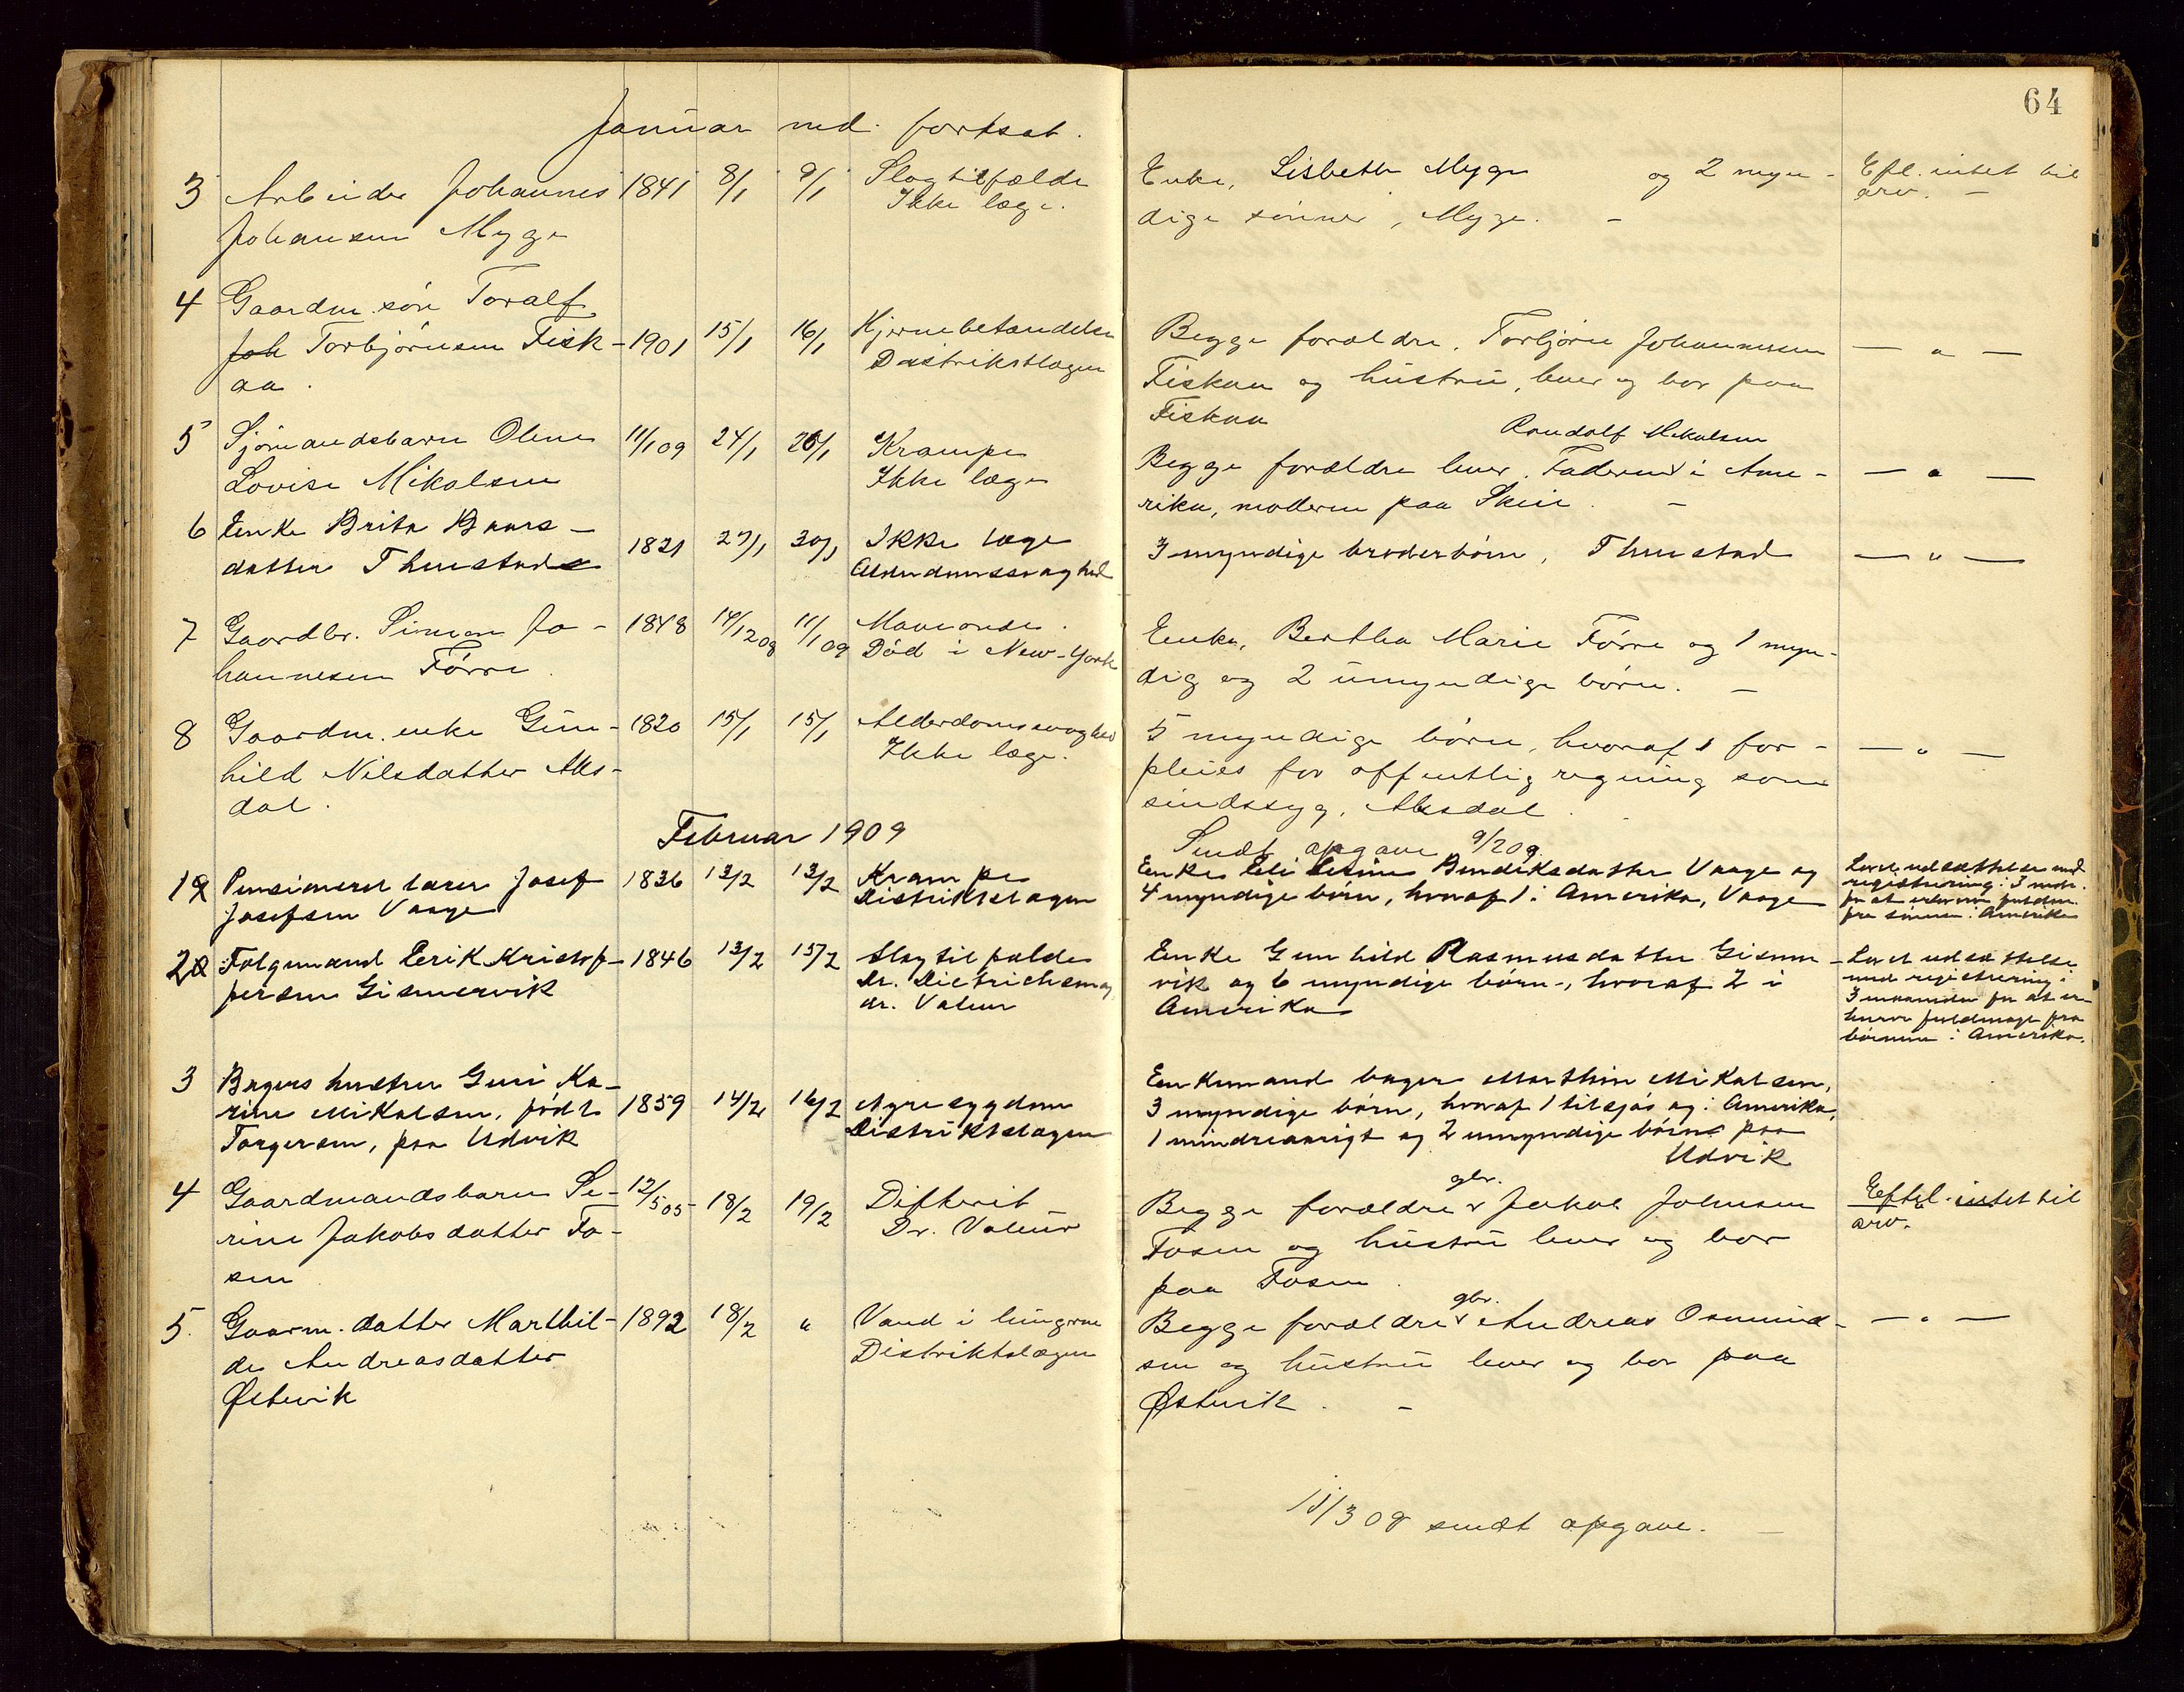 64
Januar md. fortsat.
3 Arbeider Johannes 1841 8/1 9/1 Slagtilfælde Enke, Lisbeth Myge og 2 myn- Efl. intet til
Johansen Myge Ikke læge. dige sönner, Myge. - arv. -
4 Gaardm. sön Toralf
Joh Torbjörnsen Fisk- 1901 15/1 16/1 Hjernebetændelse Begge forældre, Torbjörn Johannesen — " —
aa. Distriktslægen Fiskaa og hustru, lever og bor paa
Fiskaa
Randolf Mikalsen
5 Sjömandsbarn Oline 11/1 09 24/1 26/1 Krampe Begge forældre lever. Faderen i Ame- — " —
Lovise Mikalsen Ikke læge rika, moderen paa Skeie. -
6 Enke Brita Baars- 1821 27/1 30/1 Ikke læge 3 myndige broderbörn, Thuestad — " —
datter Thuestad Alderdomssvaghed
7 Gaardbr. Simon Jo- 1848 14/12 08 11/1 09 Maveonde. Enke, Bertha Marie Förre og 1 myn-
hannesen Förre. Död i New-York dig og 2 umyndige börn. -
8 Gaardm. enke Gun- 1820 15/1 15/1 Alderdomssvaghed 5 myndige börn, hvoraf 1 for- — " —
hild Nilsdatter Aks- Ikke læge. pleies for offentlig regning som
dal. sindssyg, Aksdal.
Februar 1909
Sendt opgave 9/2 09.
1 Pensioneret lærer Josef 1836 13/2 13/2 Krampe Enke Eli Bendiksdatter Vaage og Lovet udsættelse med
Josefsen Vaage Distriktslægen 4 myndige börn, hvoraf 1 i Amerika, Vaage registrering i 3 mdr.
for at erhverve fuldm.
fra sönnen i Amerika
2 Folgemand Erik Kristof- 1846 13/2 15/2 Slagtilfælde Enke Gunhild Rasmusdatter Gismer- Lovet udsættelse
fersen Gismervik Dr. Dietrichsen og vik og 6 myndige börn, hvoraf 2 i med registrering i
dr. Valeur Amerika 3 maaneder for at er-
hverve fuldmagt fra
börnene i Amerika.
3 Bagers hustru Guri Ka- 1859 14/2 16/2 Nyresygdom Enkemand bager Marthin Mikalsen,
rine Mikalsen, födt Distriktslægen 3 myndige börn, hvoraf 1 tilsjös og i Amerika,
Torgersen, paa Udvik 1 mindreaarigt og 2 umyndige börn paa
Udvik
4 Gaardmandsbarn Se- 12/5 05 18/2 19/2 Difterit Begge forældre gbr. Jakob Johnsen Eftl. intet til
rine Jakobsdatter Fo- Dr. Valeur Fosen og hustru lever og bor arv.
sen paa Fosen.
5. Gaarm. datter Marthil- 1892 18/2 " Vand i lungerne Begge forældre gbr. Andreas Osmund- — " —
de Andreasdatter Distriktslægen sen og hustru lever og bor paa
Østevik Østevik. -
11/3 09 sendt opgave. -